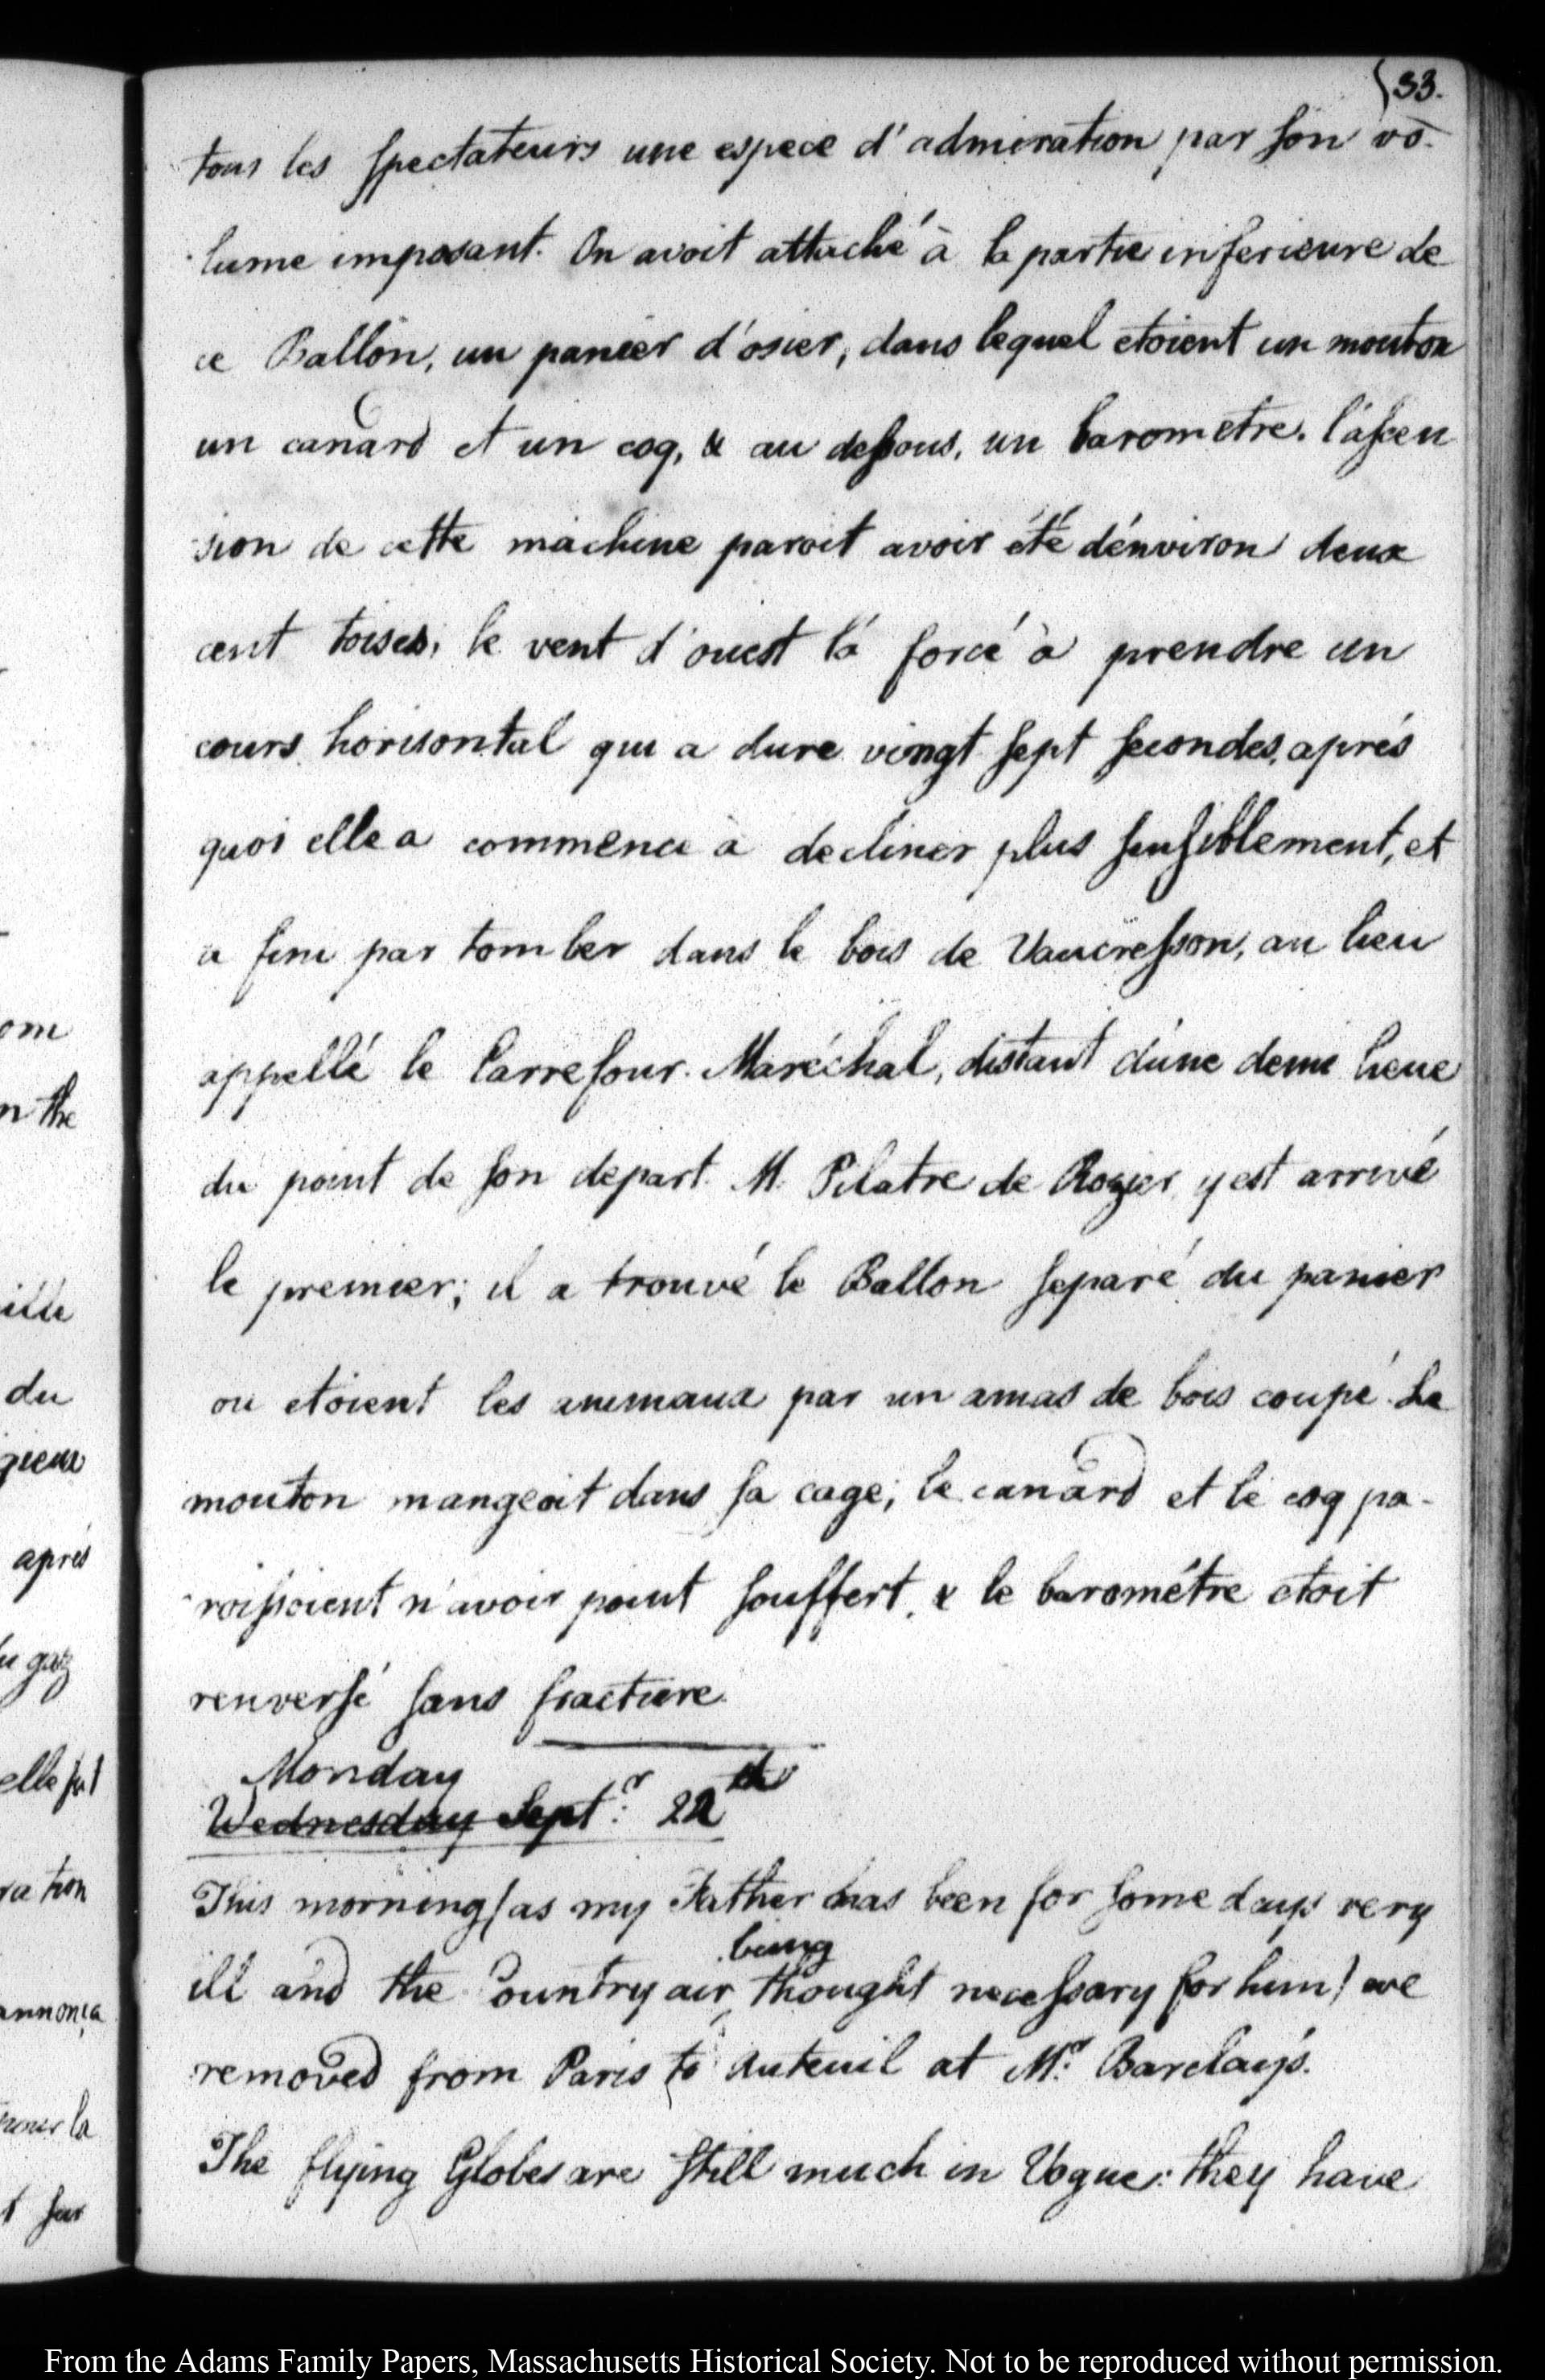 33.
tous les spectateurs une espece d'admiration par son vo-
lume imposant. On avoit attaché à la partie inferieure de
ce Ballon, un panier d'osier, dans lequel etoient un mouton
un canard et un coq, & au dessous, un barometre. l'ascen
sion de cette machine paroit avoir été d'environ deux
cent toises, le vent d'ouest l'a forcé à prendre un
cours horisontal qui a dure vingt sept secondes, aprés
quoi elle a commencé à decliner plus sensiblement, et
a fini par tomber dans le bois de Vaucresson, au lieu
appellé le Carrefour Maréchal, distant d'une demi lieue
du point de son depart. M. Pilatre de Rozier y est arrivé
le premier; il a trouvé le Ballon separé du panier
ou etoient les animaux par un amas de bois coupé. Le
mouton mangeoit dans sa cage; le canard et le coq pa-
roissoient n'avoir point souffert, & le barométre etoit
renversé sans fracture.
Monday
Wednesday Septr: 22d
This morning (as my Father has been for some days very
being
ill and the Country air, thought necessary for him) we
removed from Paris to Auteuil at Mr. Barclay's.
The flying Globes are still much in Vogue: they have
om
n the
du
aprés
u gaz
elle fut
ration
annonça
pour la
t sur
From the Adams Family Papers, Massachusetts Historical Society. Not to be reproduced without permission.